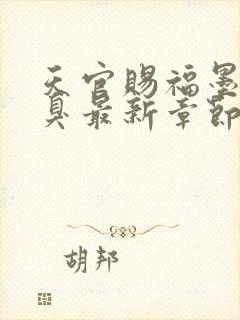 天官赐福墨
臭最新章节
胡邦